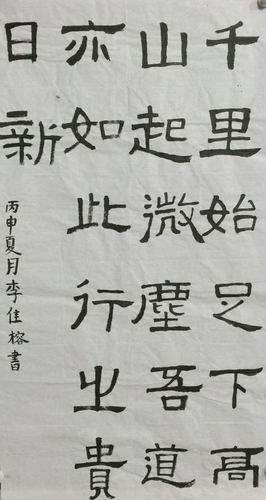 千里始足下高
山起微塵吾道
亦如此行之貴
日新
丙申夏月李佳榕書